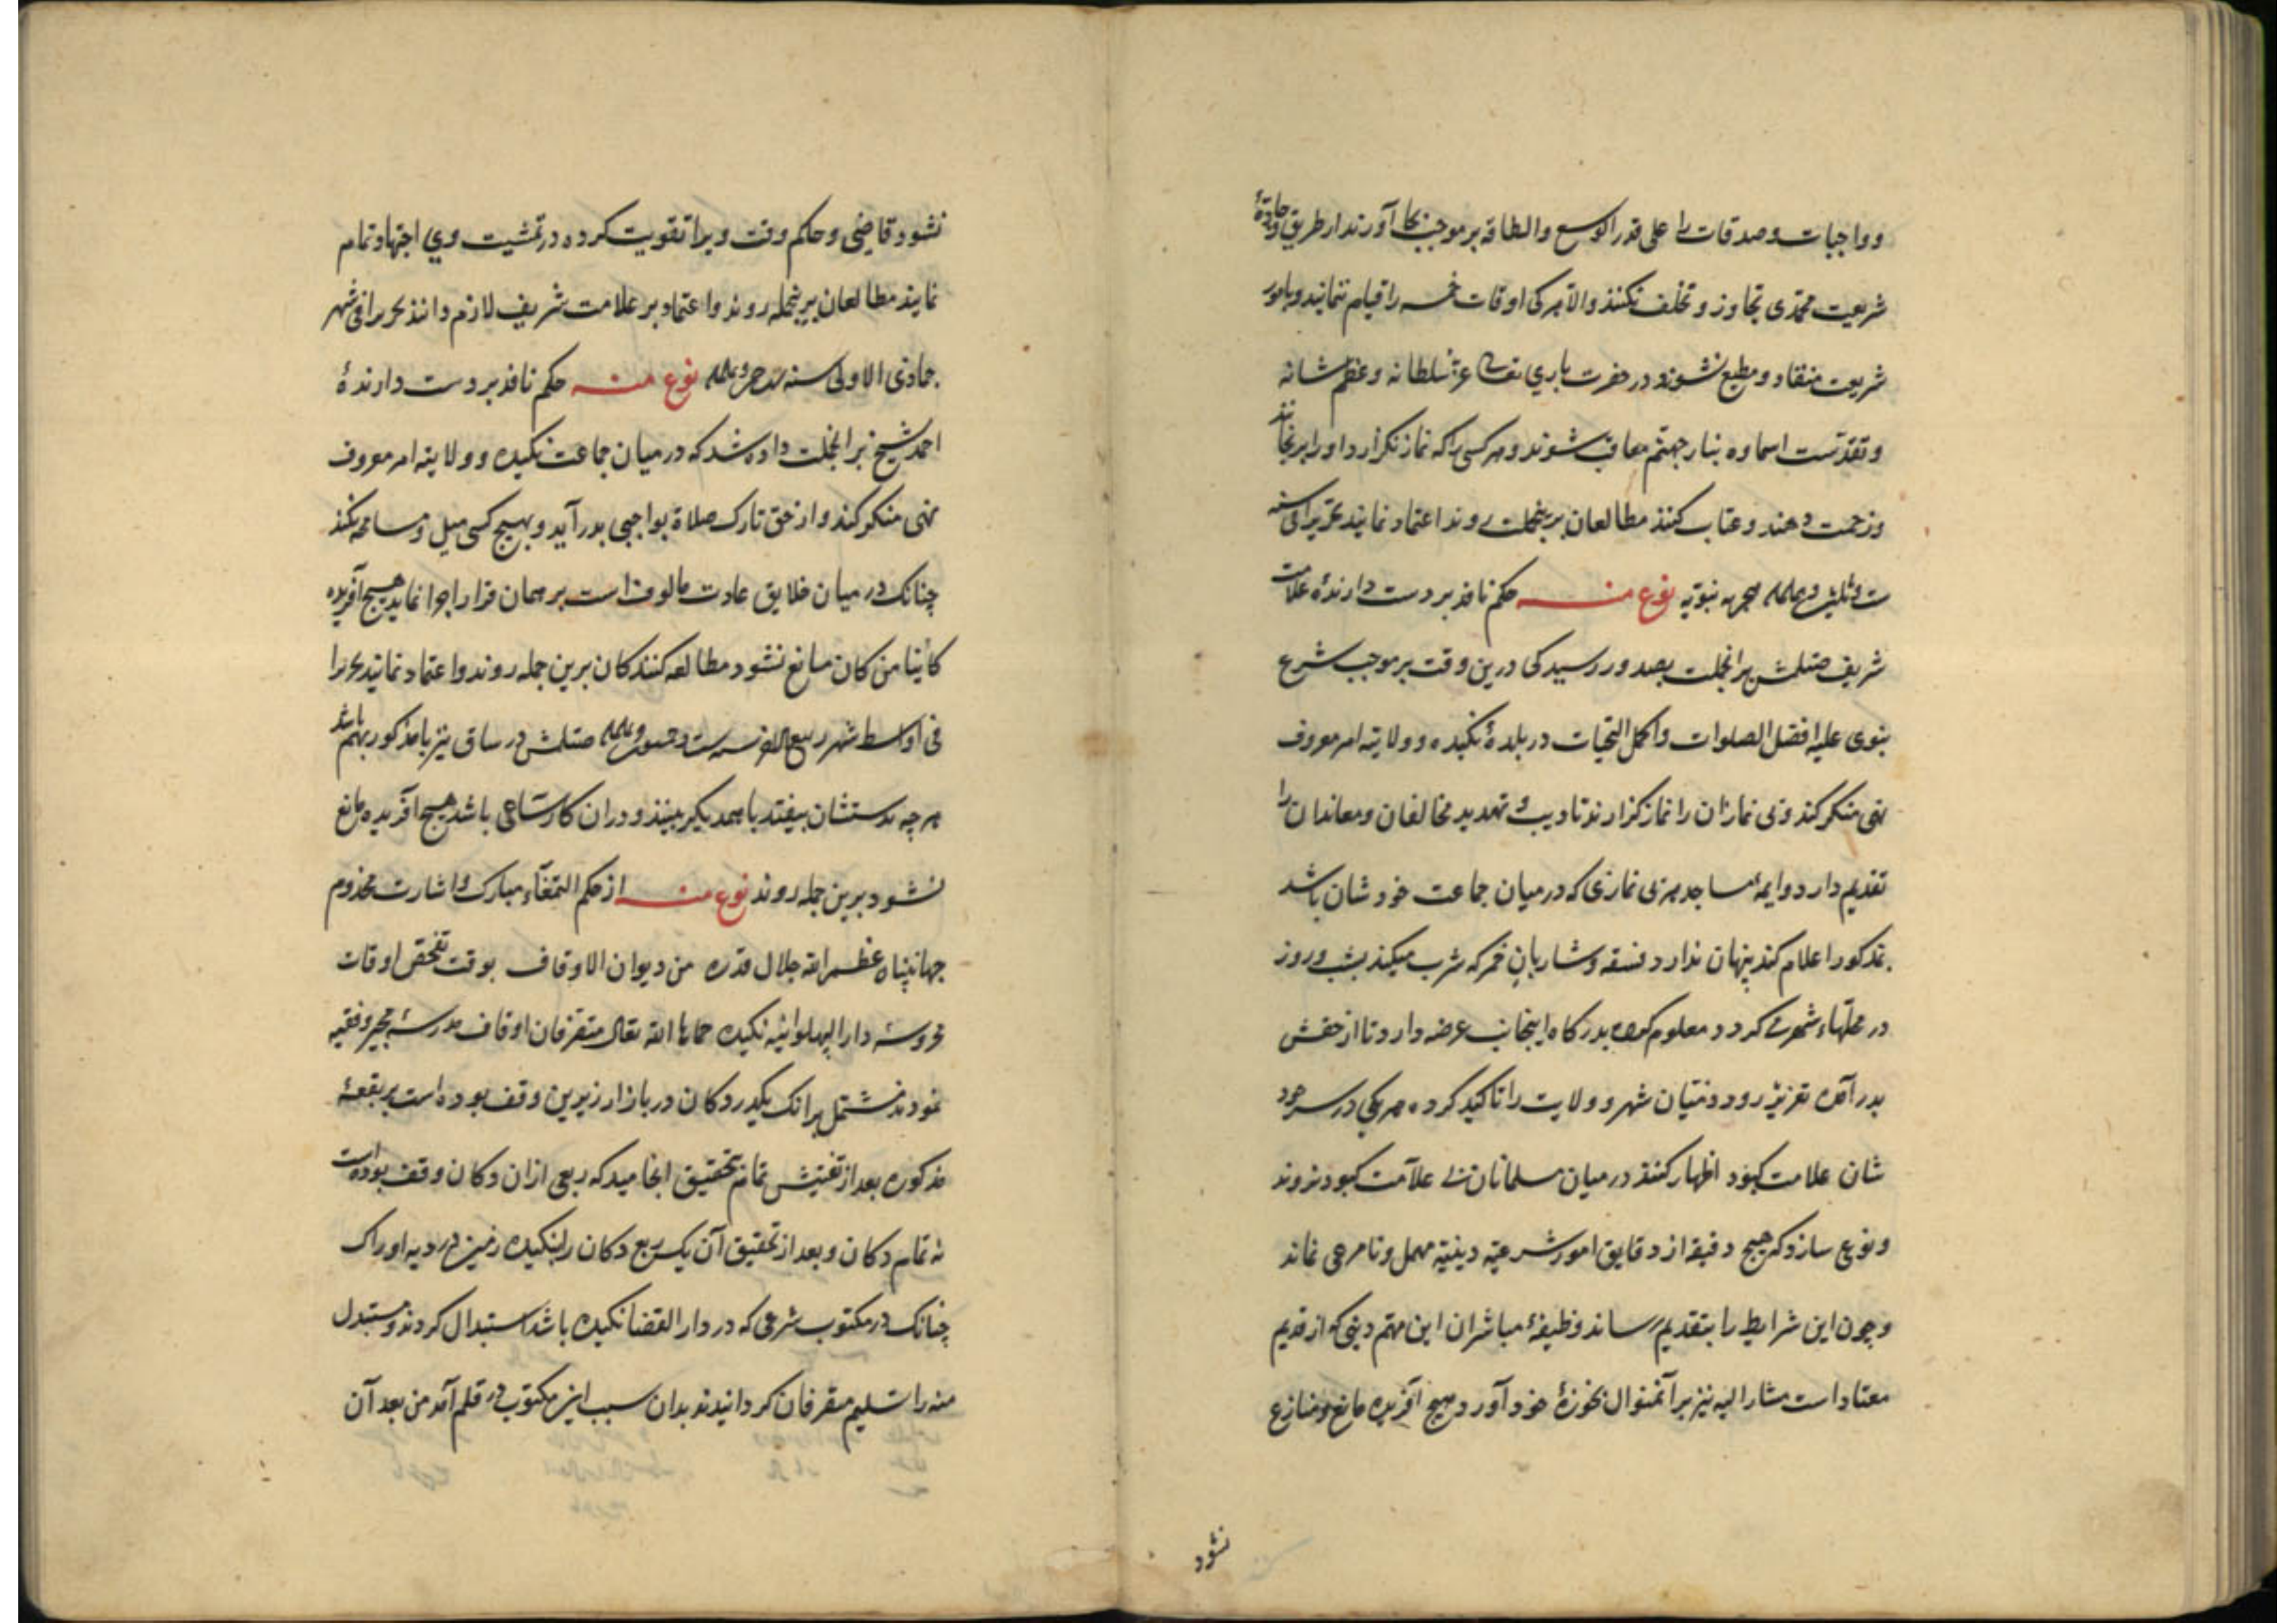 وواجبات وصدقات را علی قدر الوسع والطاقه بر موجب بجا آورند از طریق جادۀ
شریعت محمدی تجاوز و تخلف نکنند والا هر کی اوقات خمسه را قیام ننمانید و بامور
شریعت منقاد و مطیع نشوند در حضرت باری تعالی عز سلطانه وعظم شانه
وتقدست اسماوه بنار جهنم معاقب شوند و هر کسی را که نماز نگزارد او را برنجانند
وزحمت دهند وعتاب کنند مطالعان برینجملت روند اعتماد نمایند تحریرا فی سنه
هجریه نبویه نوع منه حکم نافذ بر دست دارندۀ علامت
شریف برانجملت بصدور رسید کی درین وقت بر موجب شرع
نبوی علیه افضل الصلوات واکمل التحیات در بلدۀ نکیده و ولایته امر معروف
نهی منکر کند وبی نمازان را نماز گزارند تادیب و تهدید مخالفان ومعاندان را
تقدیم دارد وایمۀ مساجد هر بی نمازی که در میان جماعت خودشان باشد
بمذکور اعلام کند پنهان ندارد فسقه وشاربان خمر که شرب میکند بشب وروز
در محلتهاء شهر می کردد معلوم کرده بدرگاه اینجانب عرضه دارد تا از حقش
بدر آمده تعزیز رود وذمّیان شهر و ولایت را تاکید کرده هر یکی در سر خود
شان علامت کبود اظهار کنند در میان مسلمانان بی علامت کبود نروند
ونوعی سازد که هیچ دقیقه از دقایق امور شرعیه دینیه مهمل ونامرعی نماند
وچون این شرایط را بتقدیم رساند وظیفۀ مباشران این مهم دینی که از قدیم
معتاد است مشار الیه نیز بر آنمنوال بحوزۀ خود آورد هیچ آفریده مانع و منازع
نشود
نشود قاضی وحاکم وقت ویرا تقویت کرده در تمشیت وی اجتهاد تمام
نمایند مطالعان برینجمله روند واعتماد بر علامت شریف لازم دانند تحریرا فی شهر
جمادی الاولی سنه نوع منه حکم نافذ بر دست دارندۀ
احمد شیخ برانجملت داده شد که در میان جماعت نکیده و ولایته امر معروف
نهی منکر کند واز حق تارک صلاة بواجبی بدر آید وبهیچ کسی میل ومسامحه نکند
چنانک در میان خلایق عادت مالوف است بر همان قرار اجرا نماید هیچ آفریده
کائنا من کان مانع نشود مطالعه کنندکان برین جمله روند واعتماد نمایند تحریرا
فی اواسط شهر ربیع الاخر در ساق نیز با مذکور بهم باشد
هر چه بدستشان بیفتد با همدیکر ببینند ودران کار ساعی باشد هیچ افریده مانع
نشود برین جمله روند نوع منه از حکم التمغاء مبارک واشارت مخدوم
جهانپناه عظم الله جلال قدره من دیوان الاوقاف بوقت تفحص اوقات
محروسۀ دار البهلوانیه نکیده حماها الله تعالی متفرقان اوقاف مدرسۀ وفقیه
نمودند مشتمل برانک یکدر دکان در بازار زیرین وقف بوده است بر بقعۀ
مذکوره بعد از تفتیش تمام تحقیق انجامید که ربعی ازان دکان وقف بوده است
نه تمام دکان وبعد از تحقیق آن یک ربع دکان را بنکیده
چنانک در مکتوب شرعی که در دار القضا نکیده باشد استبدال کردند ومستبدل
منه را تسلیم متفرقان کردانیدند بدان سبب این مکتوب در قلم آمد من بعد آن